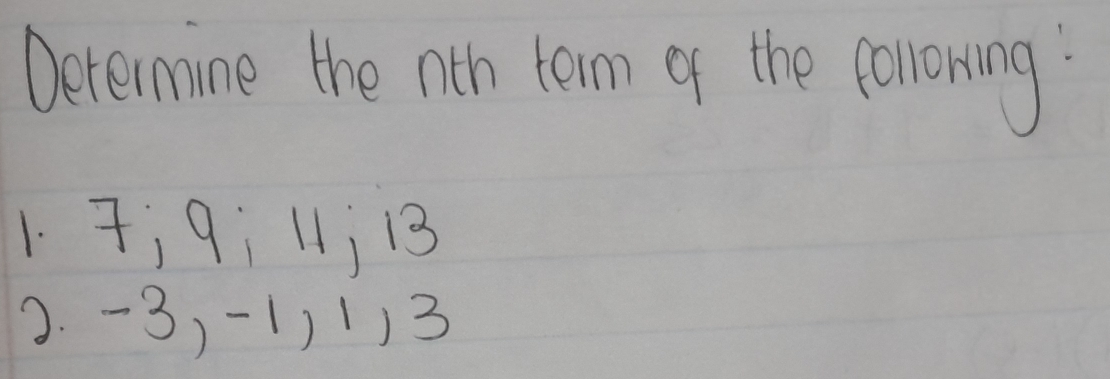 Determine the nth term of the following:
1. 7; 9; 11; 13
2. -3, -1, 1, 3